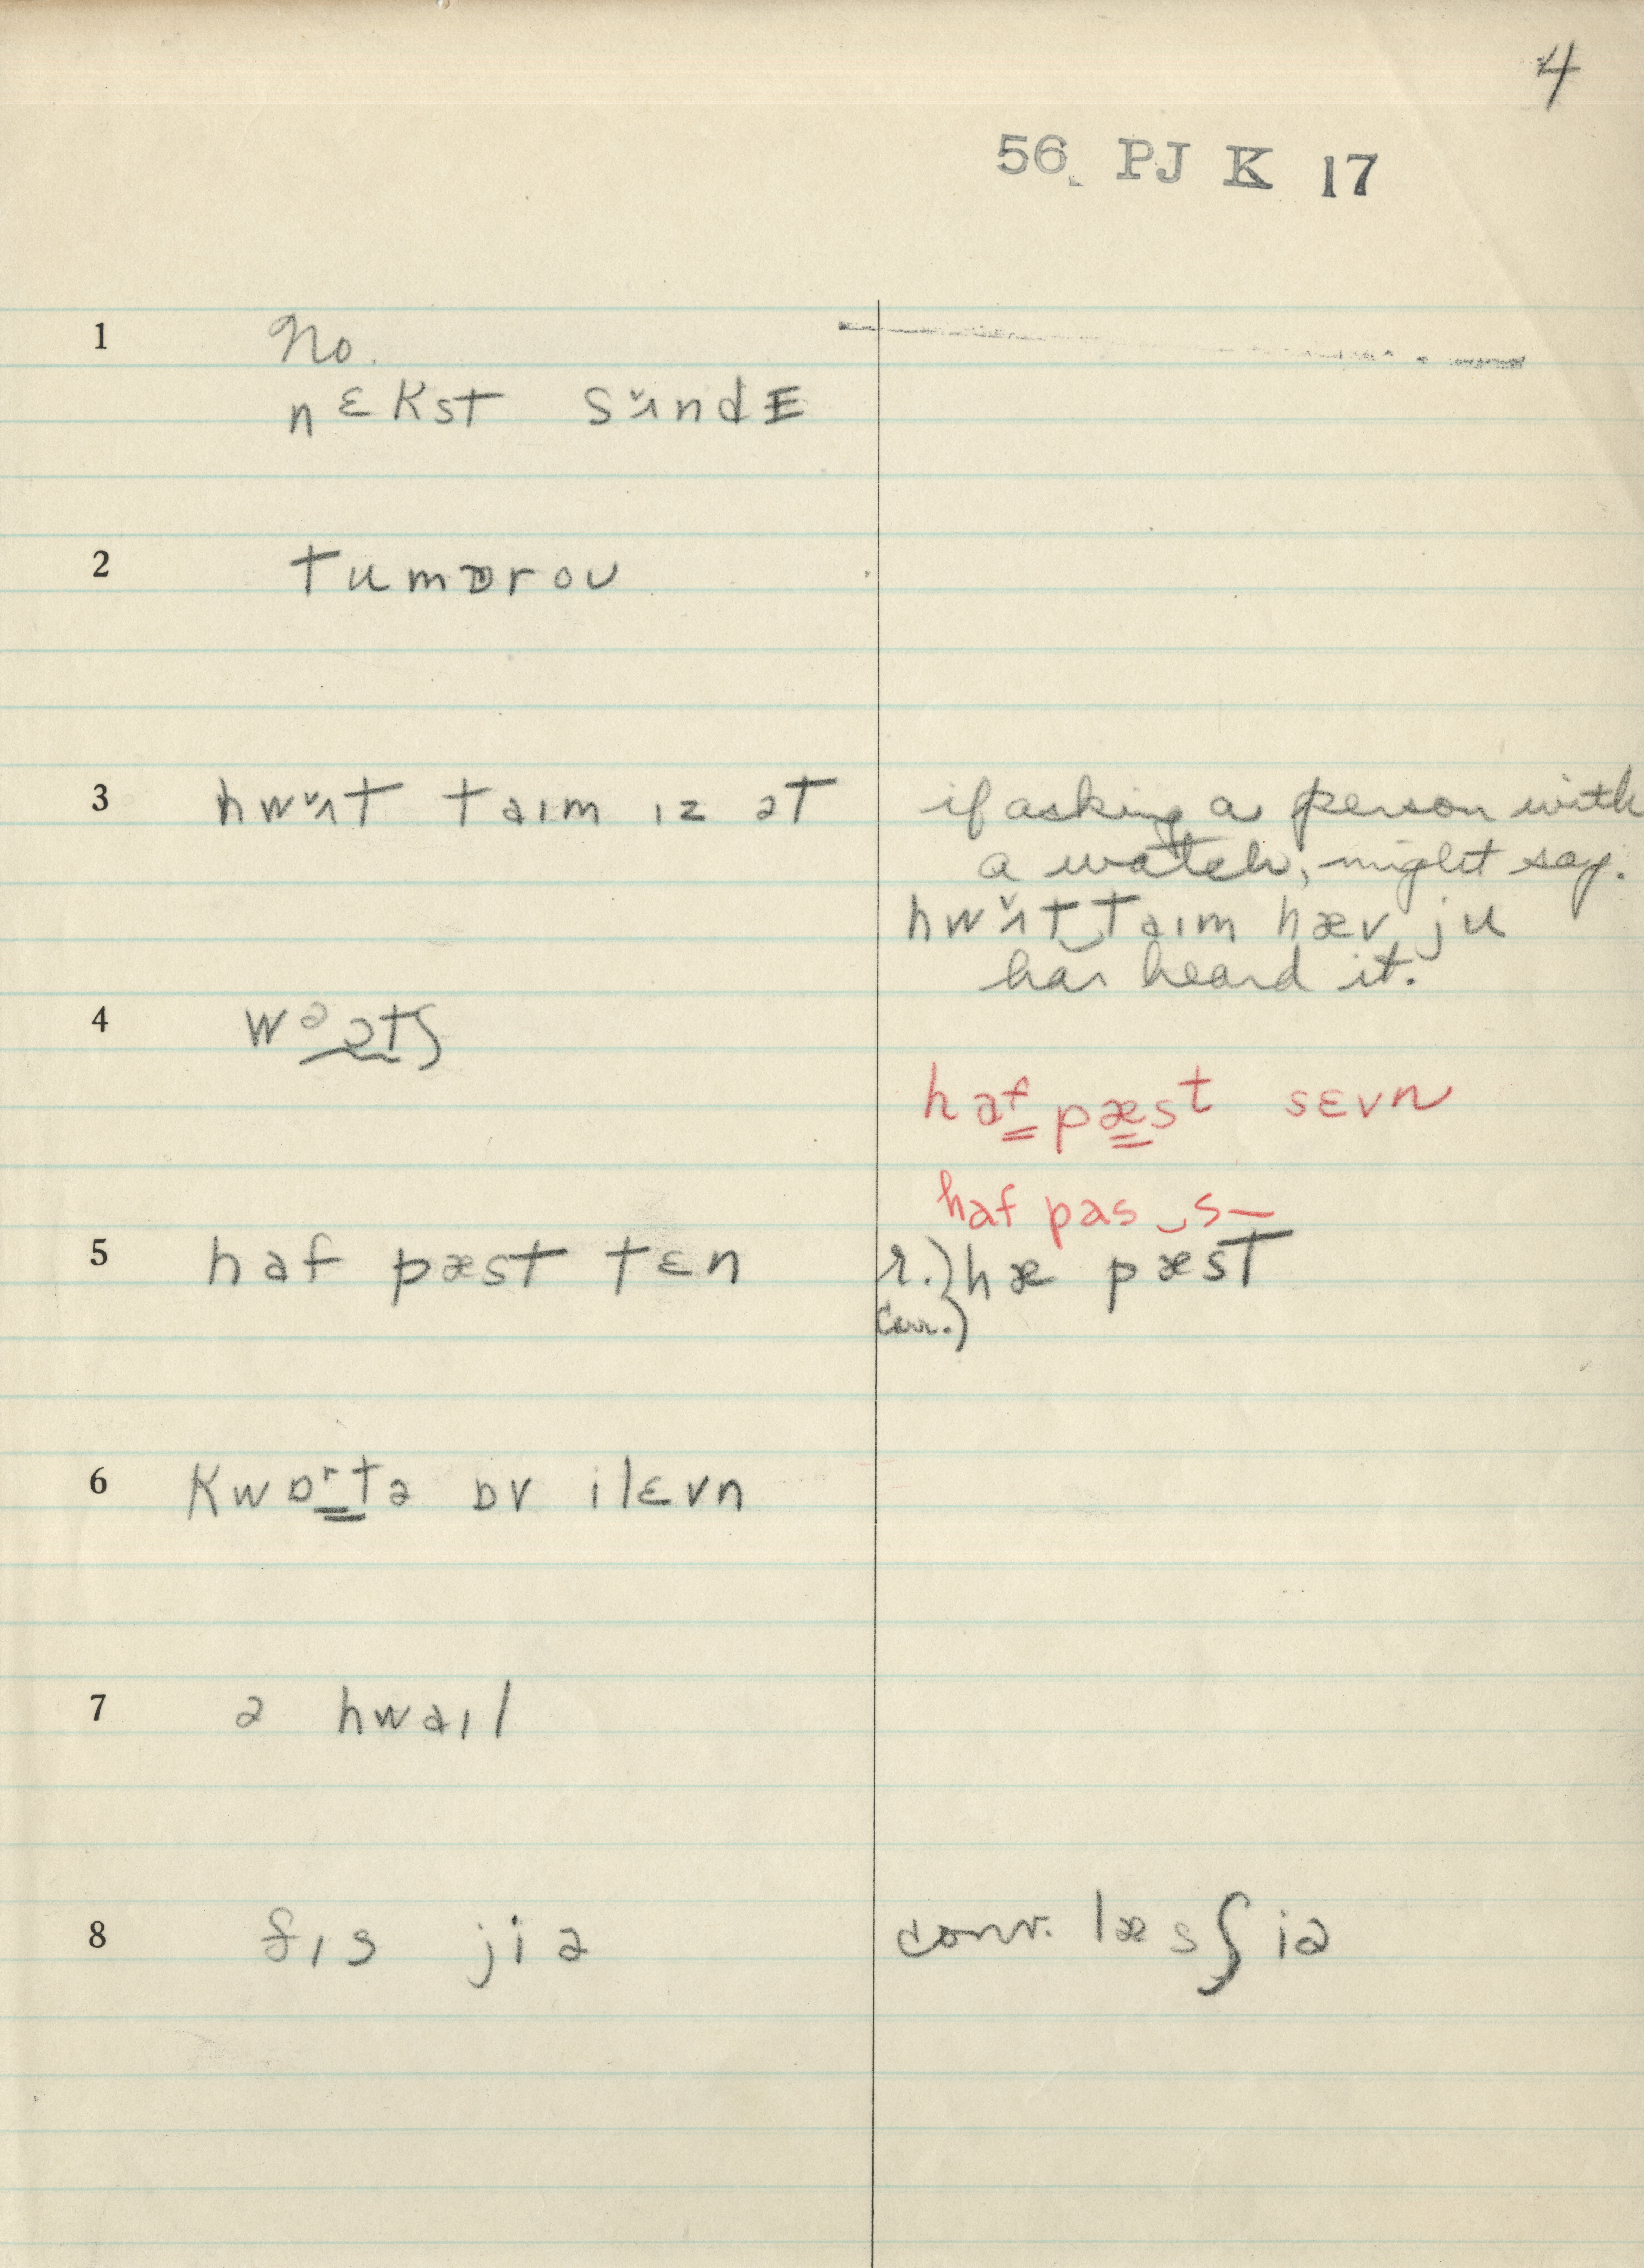 4
56. PJ K 17
1 No.
nɛkst sʌ̌ndE
2 tumɒrou
3 hwʌ̌t taim iz ət
if asking a person with
a watch, might say.
hwʌ̌t‿taim hæv ju
has heard it.
4 wɑətʃ
haf pæst sɛvn
haf pas‿s—
5 haf pæst tɛn
r.) hæ pæst
corr.)
6 kwɒrtə ɒv ilɛvn
7 ə hwail
8 ðis jiə
conv. læsʃiə